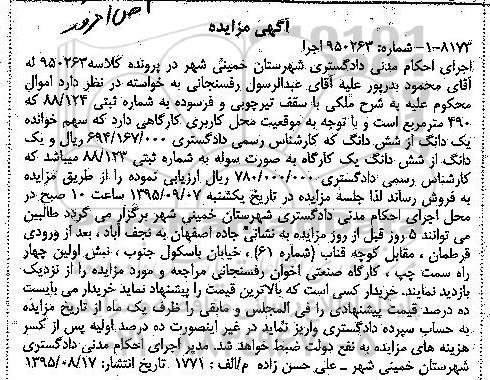 اص امروز
آگهی مزایده
۸۱۷۳-۱- شماره: ۹۵۰۲۶۳ اجرا
اجرای احکام مدنی دادگستری شهرستان خمینی شهر در پرونده کلاسه ۹۵۰۲۶۳ له
آقای محمود بدرپور علیه آقای عبدالرسول رفسنجانی به خواسته در نظر دارد اموال
محکوم علیه به شرح ملکی با سقف تیرچوبی و فرسوده به شماره ثبتی ۸۸/۱۲۴ که
۴۹۰ مترمربع است و با توجه به موقعیت محل کاربری کارگاهی دارد که سهم خوانده
یک دانگ از شش دانگ که کارشناس رسمی دادگستری ۶۹۴/۱۶۷/۰۰۰ ریال و یک
دانگ از شش دانگ یک کارگاه به صورت سوله به شماره ثبتی ۸۸/۱۲۳ میباشد که
کارشناس رسمی دادگستری ۷۸۰/۰۰۰/۰۰۰ ریال ارزیابی نموده را از طریق مزایده
به فروش رساند لذا جلسه مزایده در تاریخ یکشنبه ۱۳۹۵/۰۹/۰۷ ساعت ۱۰ صبح در
محل اجرای احکام مدنی دادگستری شهرستان خمینی شهر برگزار می گردد طالبین
می توانند ۵ روز قبل از روز مزایده به نشانی جاده اصفهان به نجف آباد ، بعد از ورودی
قرطمان ، مقابل کوچه قناب (شماره ۶۱) ، خیابان باسکول جنوب ، نبش اولین چهار
راه سمت چپ ، کارگاه صنعتی اخوان رفسنجانی مراجعه و مورد مزایده را از نزدیک
بازدید نمایند. خریدار کسی است که بالاترین قیمت را پیشنهاد نماید خریدار می بایست
ده درصد قیمت پیشنهادی را فی المجلس و مابقی را ظرف یک ماه از تاریخ مزایده
به حساب سپرده دادگستری واریز نماید در غیر اینصورت ده درصد اولیه پس از کسر
هزینه های مزایده به نفع دولت ضبط خواهد شد. مدیر اجرای احکام مدنی دادگستری
شهرستان خمینی شهر - علی حسن زاده م/الف : ۱۷۷۱ تاریخ انتشار: ۱۳۹۵/۰۸/۱۷